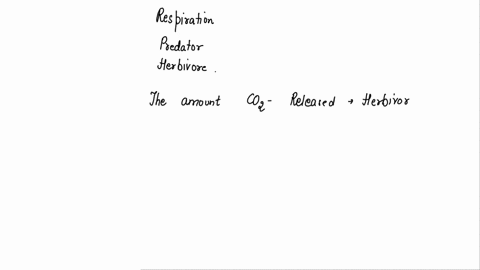 Respiration
Predator
Herbivore.
The amount CO2- Released → Herbivor